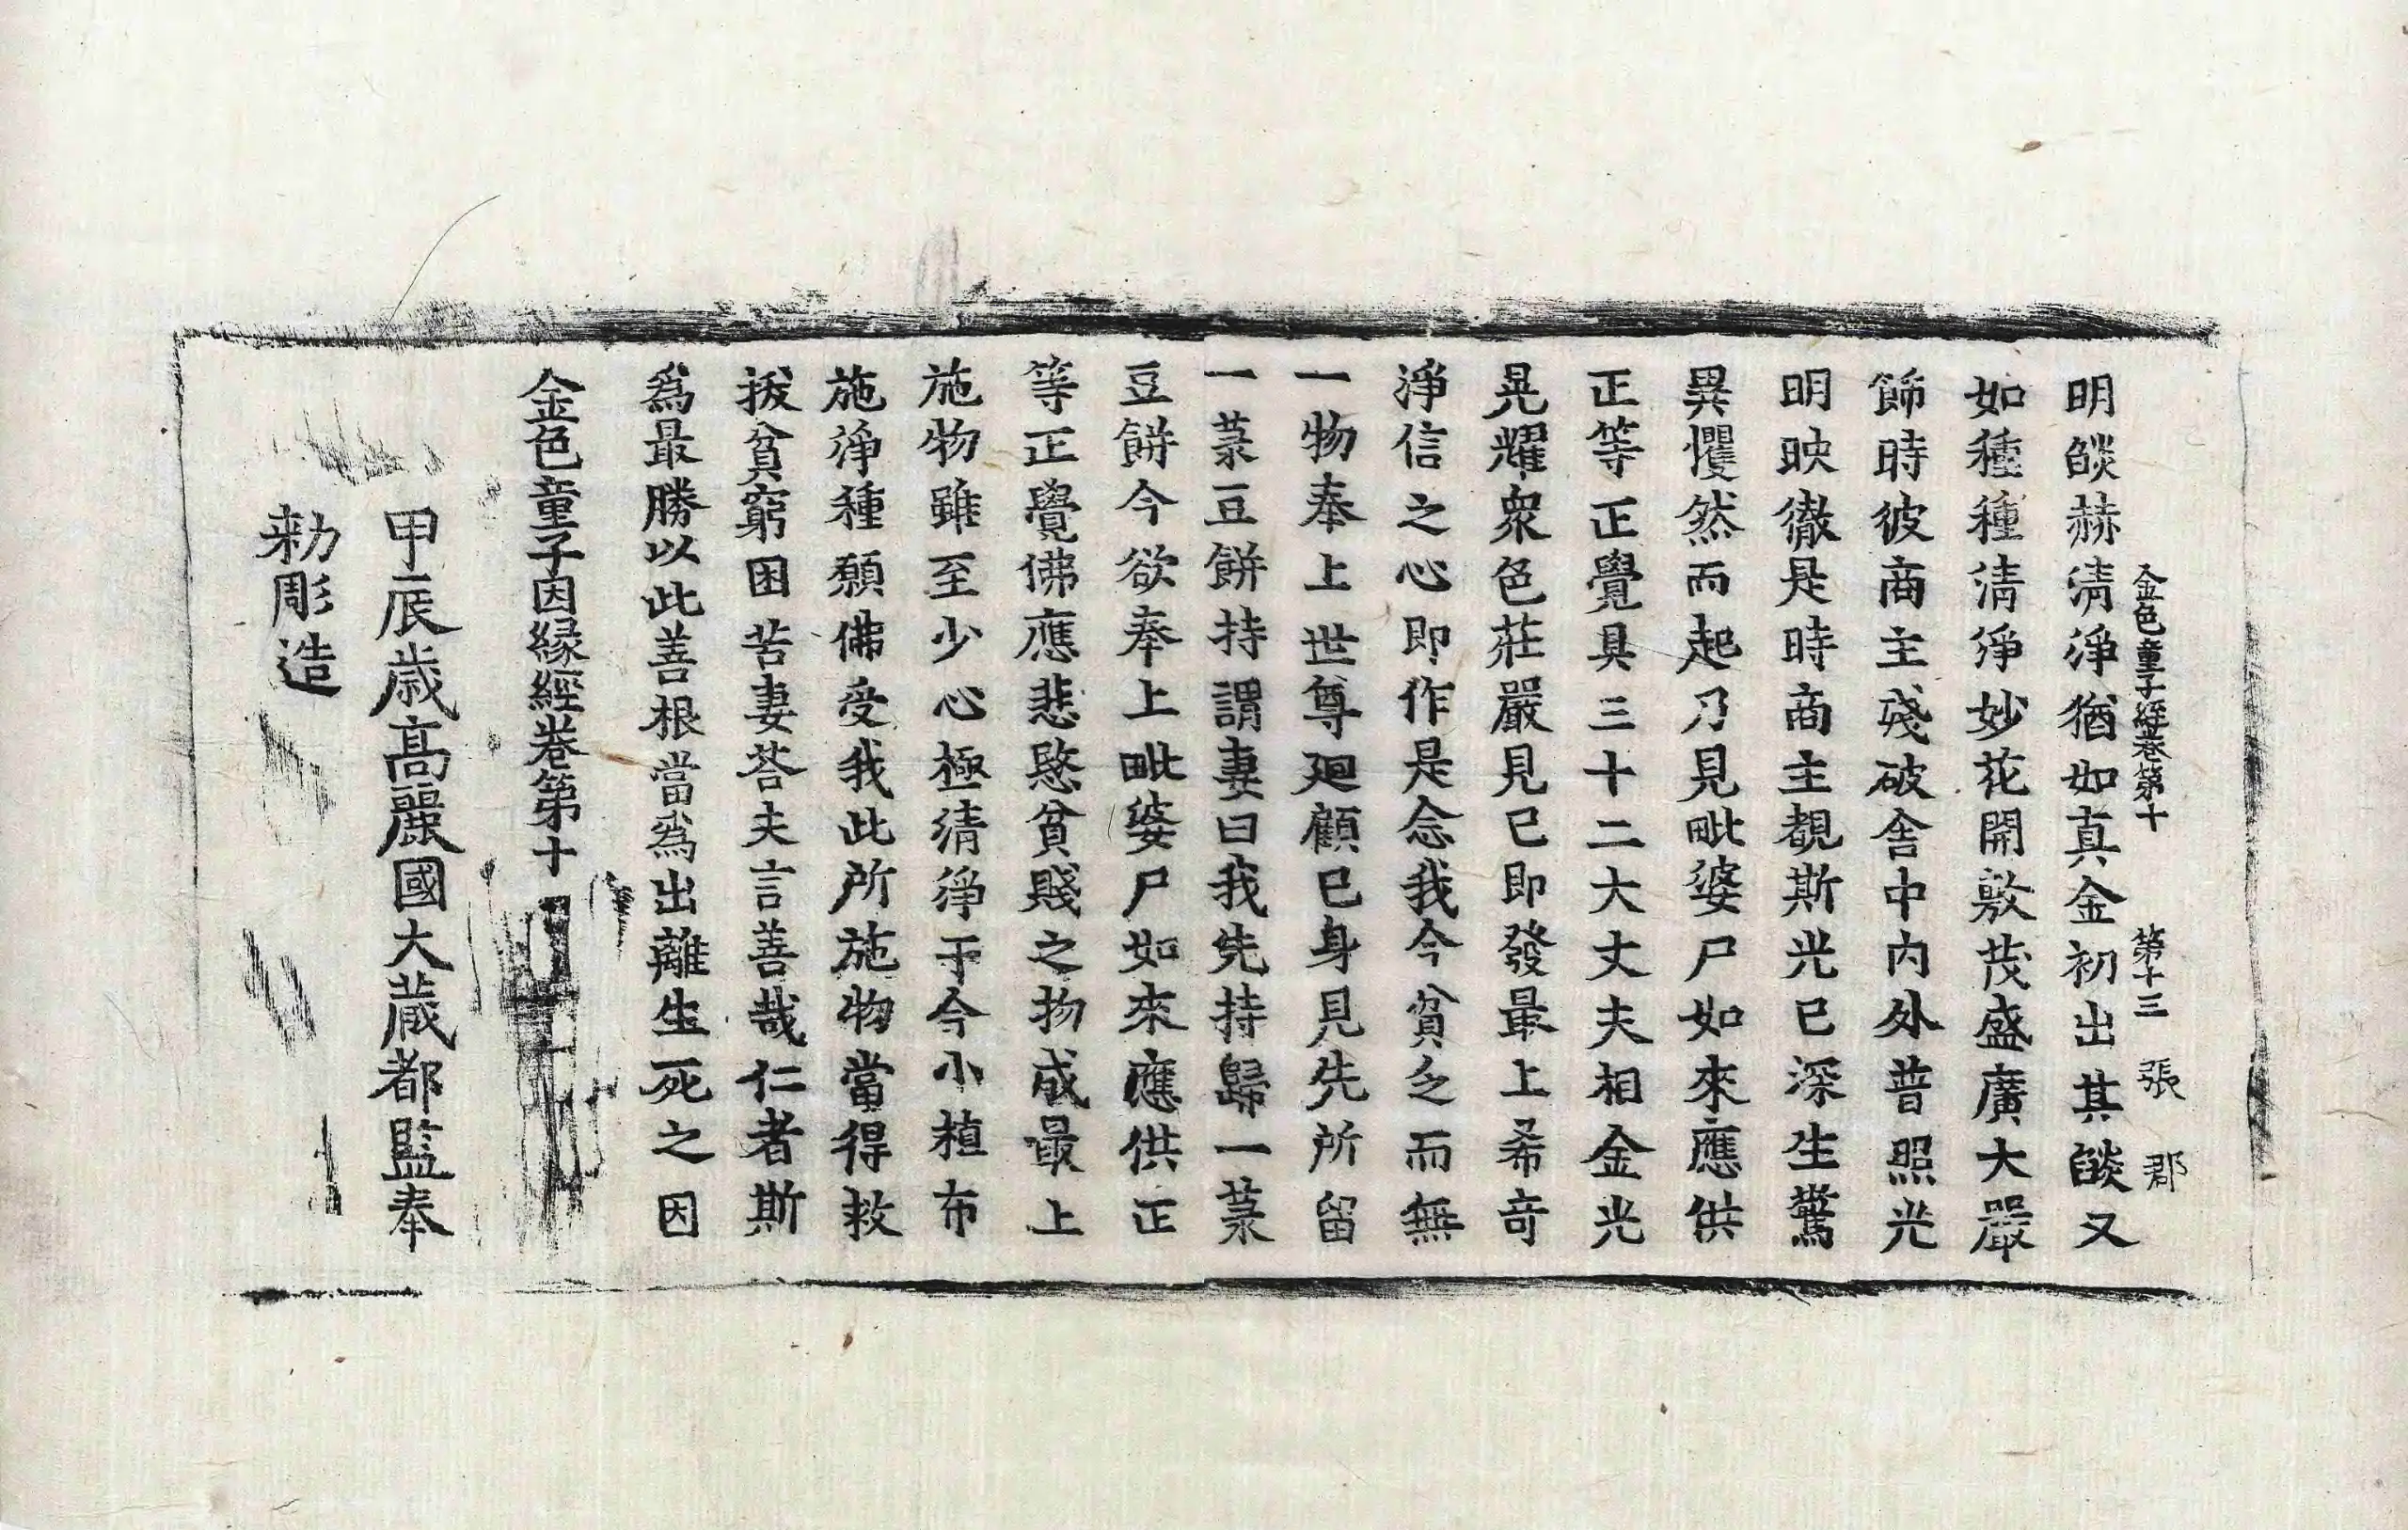 金色童子經卷第十 第十三 張 郡
明燄赫淸淨猶如真金初出其燄又
如種種淸淨妙花開敷茂盛廣大嚴
飾時彼商主殘破舍中內外普照光
明映徹是時商主覩斯光已深生驚
異懼然而起乃見毗婆尸如來應供
正等正覺具三十二大丈夫相金光
晃耀衆色莊嚴見已即發最上希竒
淨信之心即作是念我今貧乏而無
一物奉上世尊廻顧已身見先所留
一菉豆餅持謂妻曰我先持歸一菉
豆餅今欲奉上毗婆尸如來應供正
等正覺佛應悲愍貧賤之物成最上
施物雖至少心極清淨于今小植布
施淨種願佛受我此所施物當得救
拔貧窮困苦妻荅夫言善哉仁者斯
爲最勝以此善根當爲出離生死之因
金色童子因縁經卷第十
甲辰歳髙麗國大藏都監奉
勑彫造